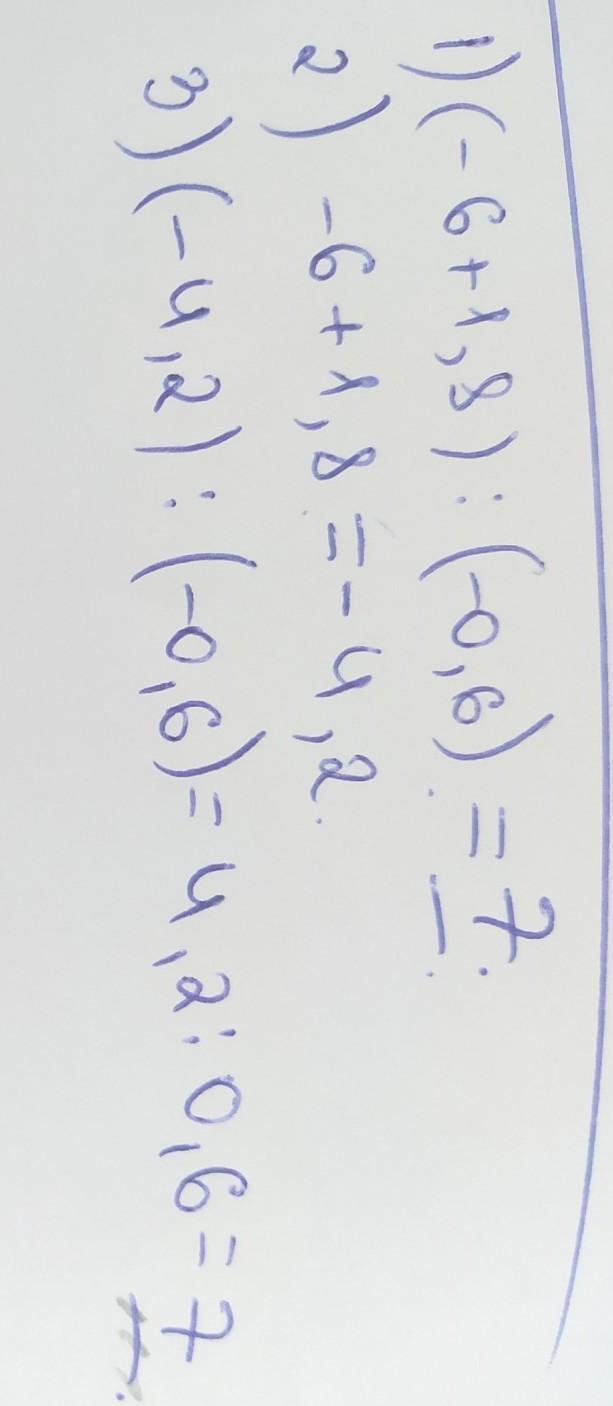 1) (-6+1,8):(-0,6) = 7.
2) -6+1,8 = -4,2.
3) (-4,2):(-0,6) = 4,2:0,6 = 7